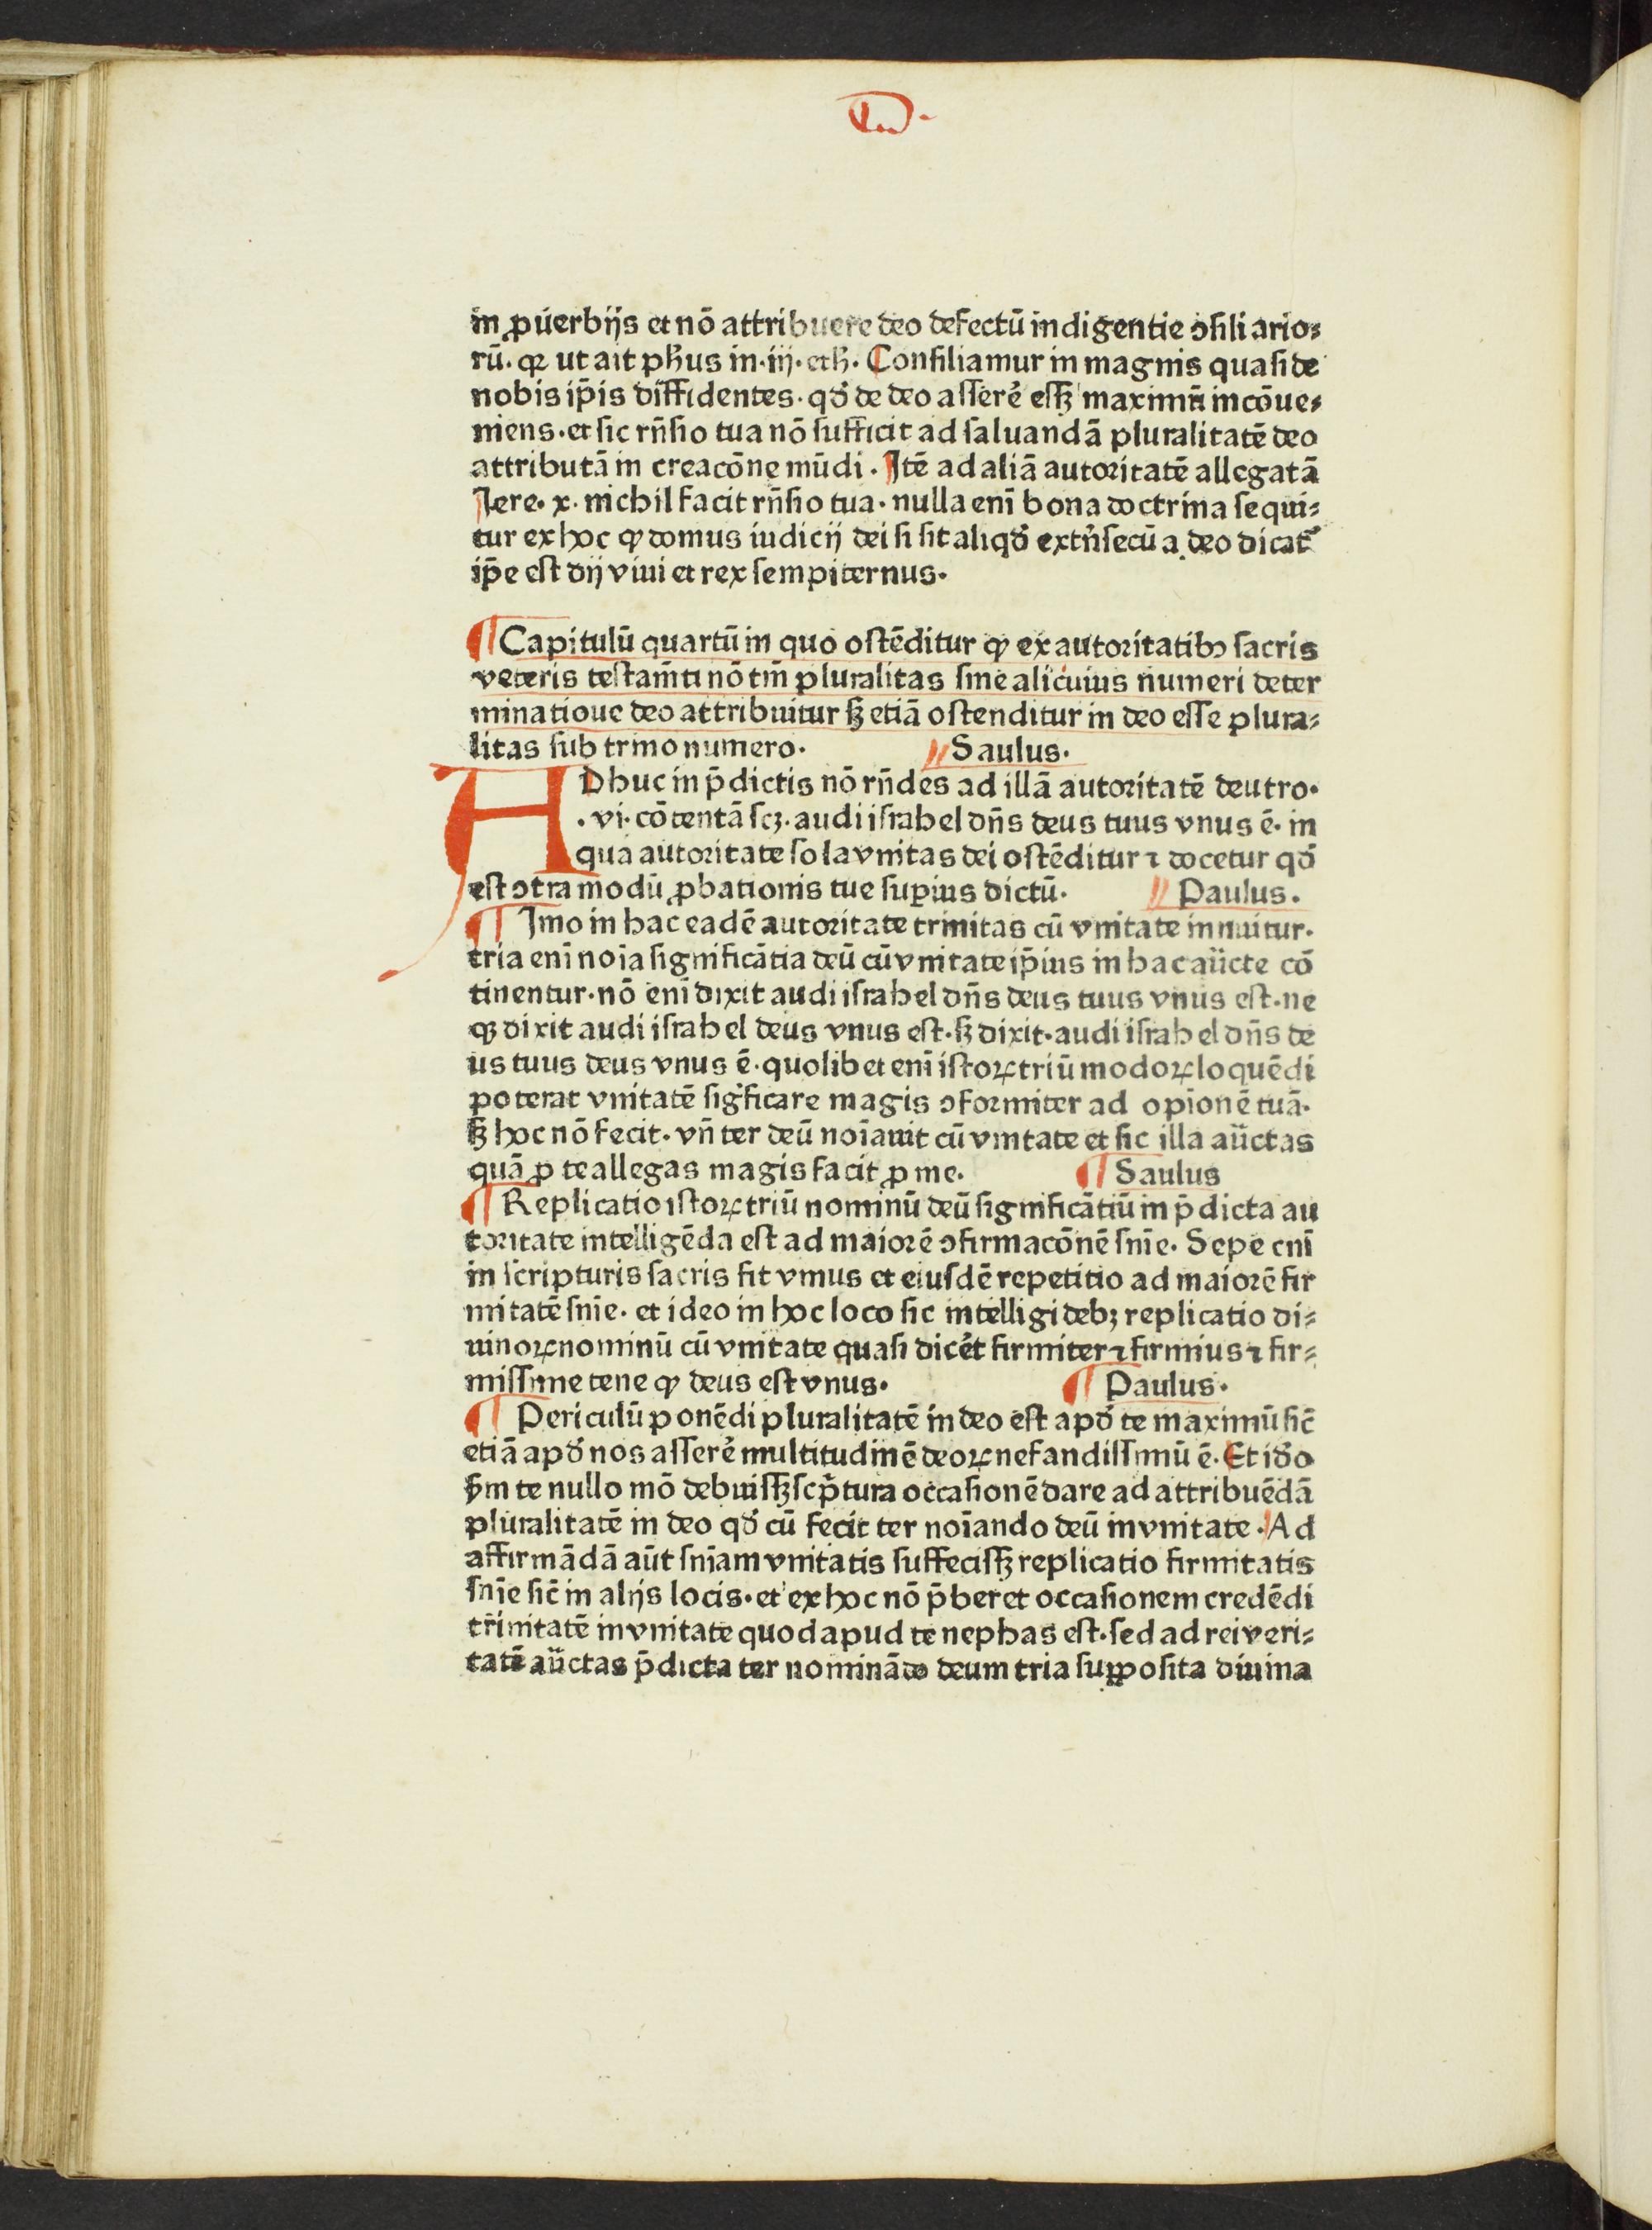 in ꝓuerbijs et nō attribuere deo defectū indigentie ↄſiliario⸗
rū. qꝛ ut ait ph̄us in .iij. eth̄. Conſiliamur in magnis quaſi de
nobis ip̄is diffidentes. qd̓ de deo aſſere᷑ eſſꝫ maximū incōue⸗
niens. et ſic rn̄ſio tua nō ſufficit ad ſaluandā pluralitatē deo
attributā in creacōne mūdi. Itē ad aliā autoritatē allegatā
Iere. x. nichil facit rn̄ſio tua. nulla enī bona doctrina ſequi⸗
tur ex hoc ꝙ domus iudicij dei ſi ſit aliqd̓ extn̓ſecū a deo dicat᷑
ip̄e eſt dij viui et rex ſempiternus.
¶ Capitulū quartū in quo oſtēditur ꝙ ex autoritatibꝰ ſacris
veteris teſtam̄ti nō tm̄ pluralitas ſine alicuius numeri deter
minatioue deo attribuitur ſꝫ etiā oſtenditur in deo eſſe plura⸗
litas ſub trino numero. // Saulus.
ADhuc in p̄dictis nō rn̄des ad illā autoritatē deutro.
.vi. cōtentā ſcꝫ. audi iſrahel dn̄s deus tuus vnus ē. in
qua autoritate ſola vnitas dei oſtēditur ⁊ docetur qd̓
eſt ↄtra modū ꝓbationis tue ſuꝑius dictū. // Paulus.
¶ Imo in hac eadē autoritate trinitas cū vnitate innuitur.
tria enī noīa ſignificātia deū cū vnitate ip̄ius in hac aūcte cō
tinentur. nō enī dixit audi iſrahel dn̄s deus tuus vnus eſt. ne
qꝫ dixit audi iſrahel deus vnus eſt. ſꝫ dixit. audi iſrahel dn̄s de
us tuus deus vnus ē. quolibet enī iſtoꝝ triū modoꝝ loquēdi
poterat vnitatē ſig̓ficare magis ↄformiter ad opīonē tuā.
ſꝫ hoc nō fecit. vn̄ ter deū noīauit cū vnitate et ſic illa aūctas
quā ꝓ te allegas magis facit ꝓ me. ¶ Saulus
¶ Replicatio iſtoꝝ triū nominū deū ſignificātiū in p̄dicta au
toritate intelligēda eſt ad maiorē ↄfirmacōnē ſnīe. Sepe enī
in ſcripturis ſacris fit vnius et eiuſdē repetitio ad maiorē fir
mitatē ſnīe. et ideo in hoc loco ſic intelligi debꝫ replicatio di⸗
uinoꝝ nominū cū vnitate quaſi dice᷑t firmiter ⁊ firmius ⁊ fir⸗
miſſime tene ꝙ deus eſt vnus. ¶ Paulus.
¶ Periculū ponēdi pluralitatē in deo eſt apd̓ te maximū ſic̄
etiā apd̓ nos aſſere᷑ multitudinē deoꝝ nefandiſſimū ē. Et id̓o
ẜm te nullo mō debuiſſꝫ ſcp̓tura occaſionē dare ad attribuēdā
pluralitatē in deo qd̓ cū fecit ter noīando deū in vnitate. Ad
affirmādā aūt ſnīam vnitatis ſuffeciſſꝫ replicatio firmitatis
ſnīe ſic̄ in alijs locis. et ex hoc nō p̄beret occaſionem credēdi
trīnitatē in vnitate quod apud te nephas eſt. ſed ad rei veri⸗
tatē aūctas p̄dicta ter nominādo deum tria ſuppoſita diuina